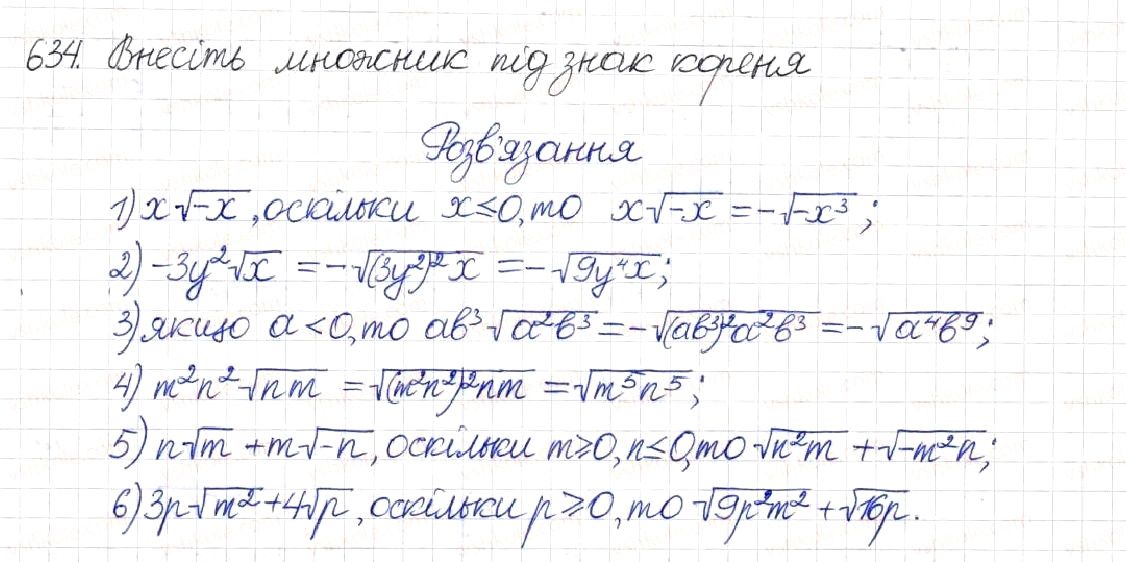 634. Внесіть множник під знак кореня
Розв'язання
1) x√(-x), оскільки x≤0, то x√(-x) = -√(-x³);
2) -3y²√x = -√((3y²)²x) = -√(9y⁴x);
3) якщо a<0, то ab³√(a²b³) = -√((ab³)²a²b³) = -√(a⁴b⁹);
4) m²n²√(nm) = √((m²n²)²nm) = √(m⁵n⁵);
5) n√m + m√(-n), оскільки m≥0, n≤0, то √(n²m) + √(-m²n);
6) 3p√(m²) + 4√p, оскільки p≥0, то √(9p²m²) + √(16p).